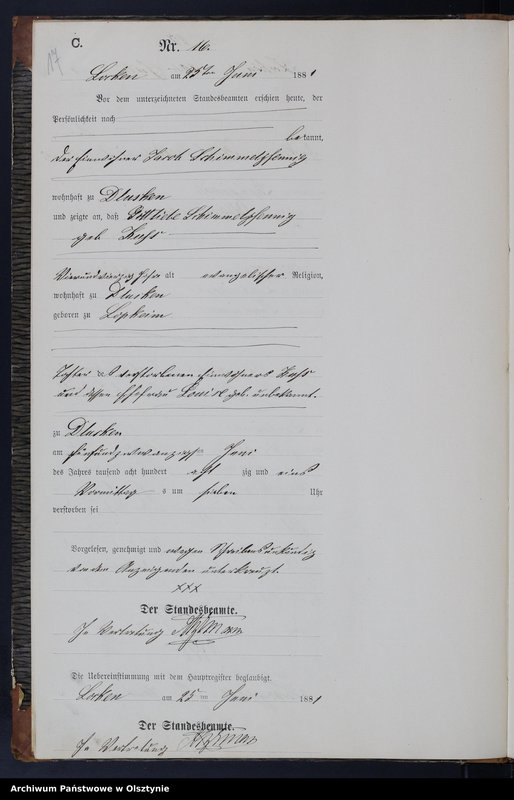 17
C.
Nr. 16.
Locken am 25ten Juni 1881
Vor dem unterzeichneten Standesbeamten erschien heute, der
Persönlichkeit nach
bekannt,
der Einwohner Jacob Schimmelpfennig
wohnhaft zu Dlusken
und zeigte an, daß Gottliebe Schimmelpfennig
geb.
Vierundvierzig Jahr alt evangelischer Religion,
wohnhaft zu Dlusken
geboren zu
Tochter des verstorbenen Einwohners
und dessen Ehefrau Louise geb. unbekannt.
zu Dlusken
am fünfundzwanzigsten Juni
des Jahres tausend acht hundert achtzig und eins
Vormittags um sieben Uhr
verstorben sei
Vorgelesen, genehmigt und wegen Schreibensunkunde
von dem Anzeigenden unterkreuzt.
xxx
Der Standesbeamte.
In Vertretung
Die Uebereinstimmung mit dem Hauptregister beglaubigt.
Locken am 25ten Juni 1881
Der Standesbeamte.
In Vertretung
Archiwum Państwowe w Olsztynie